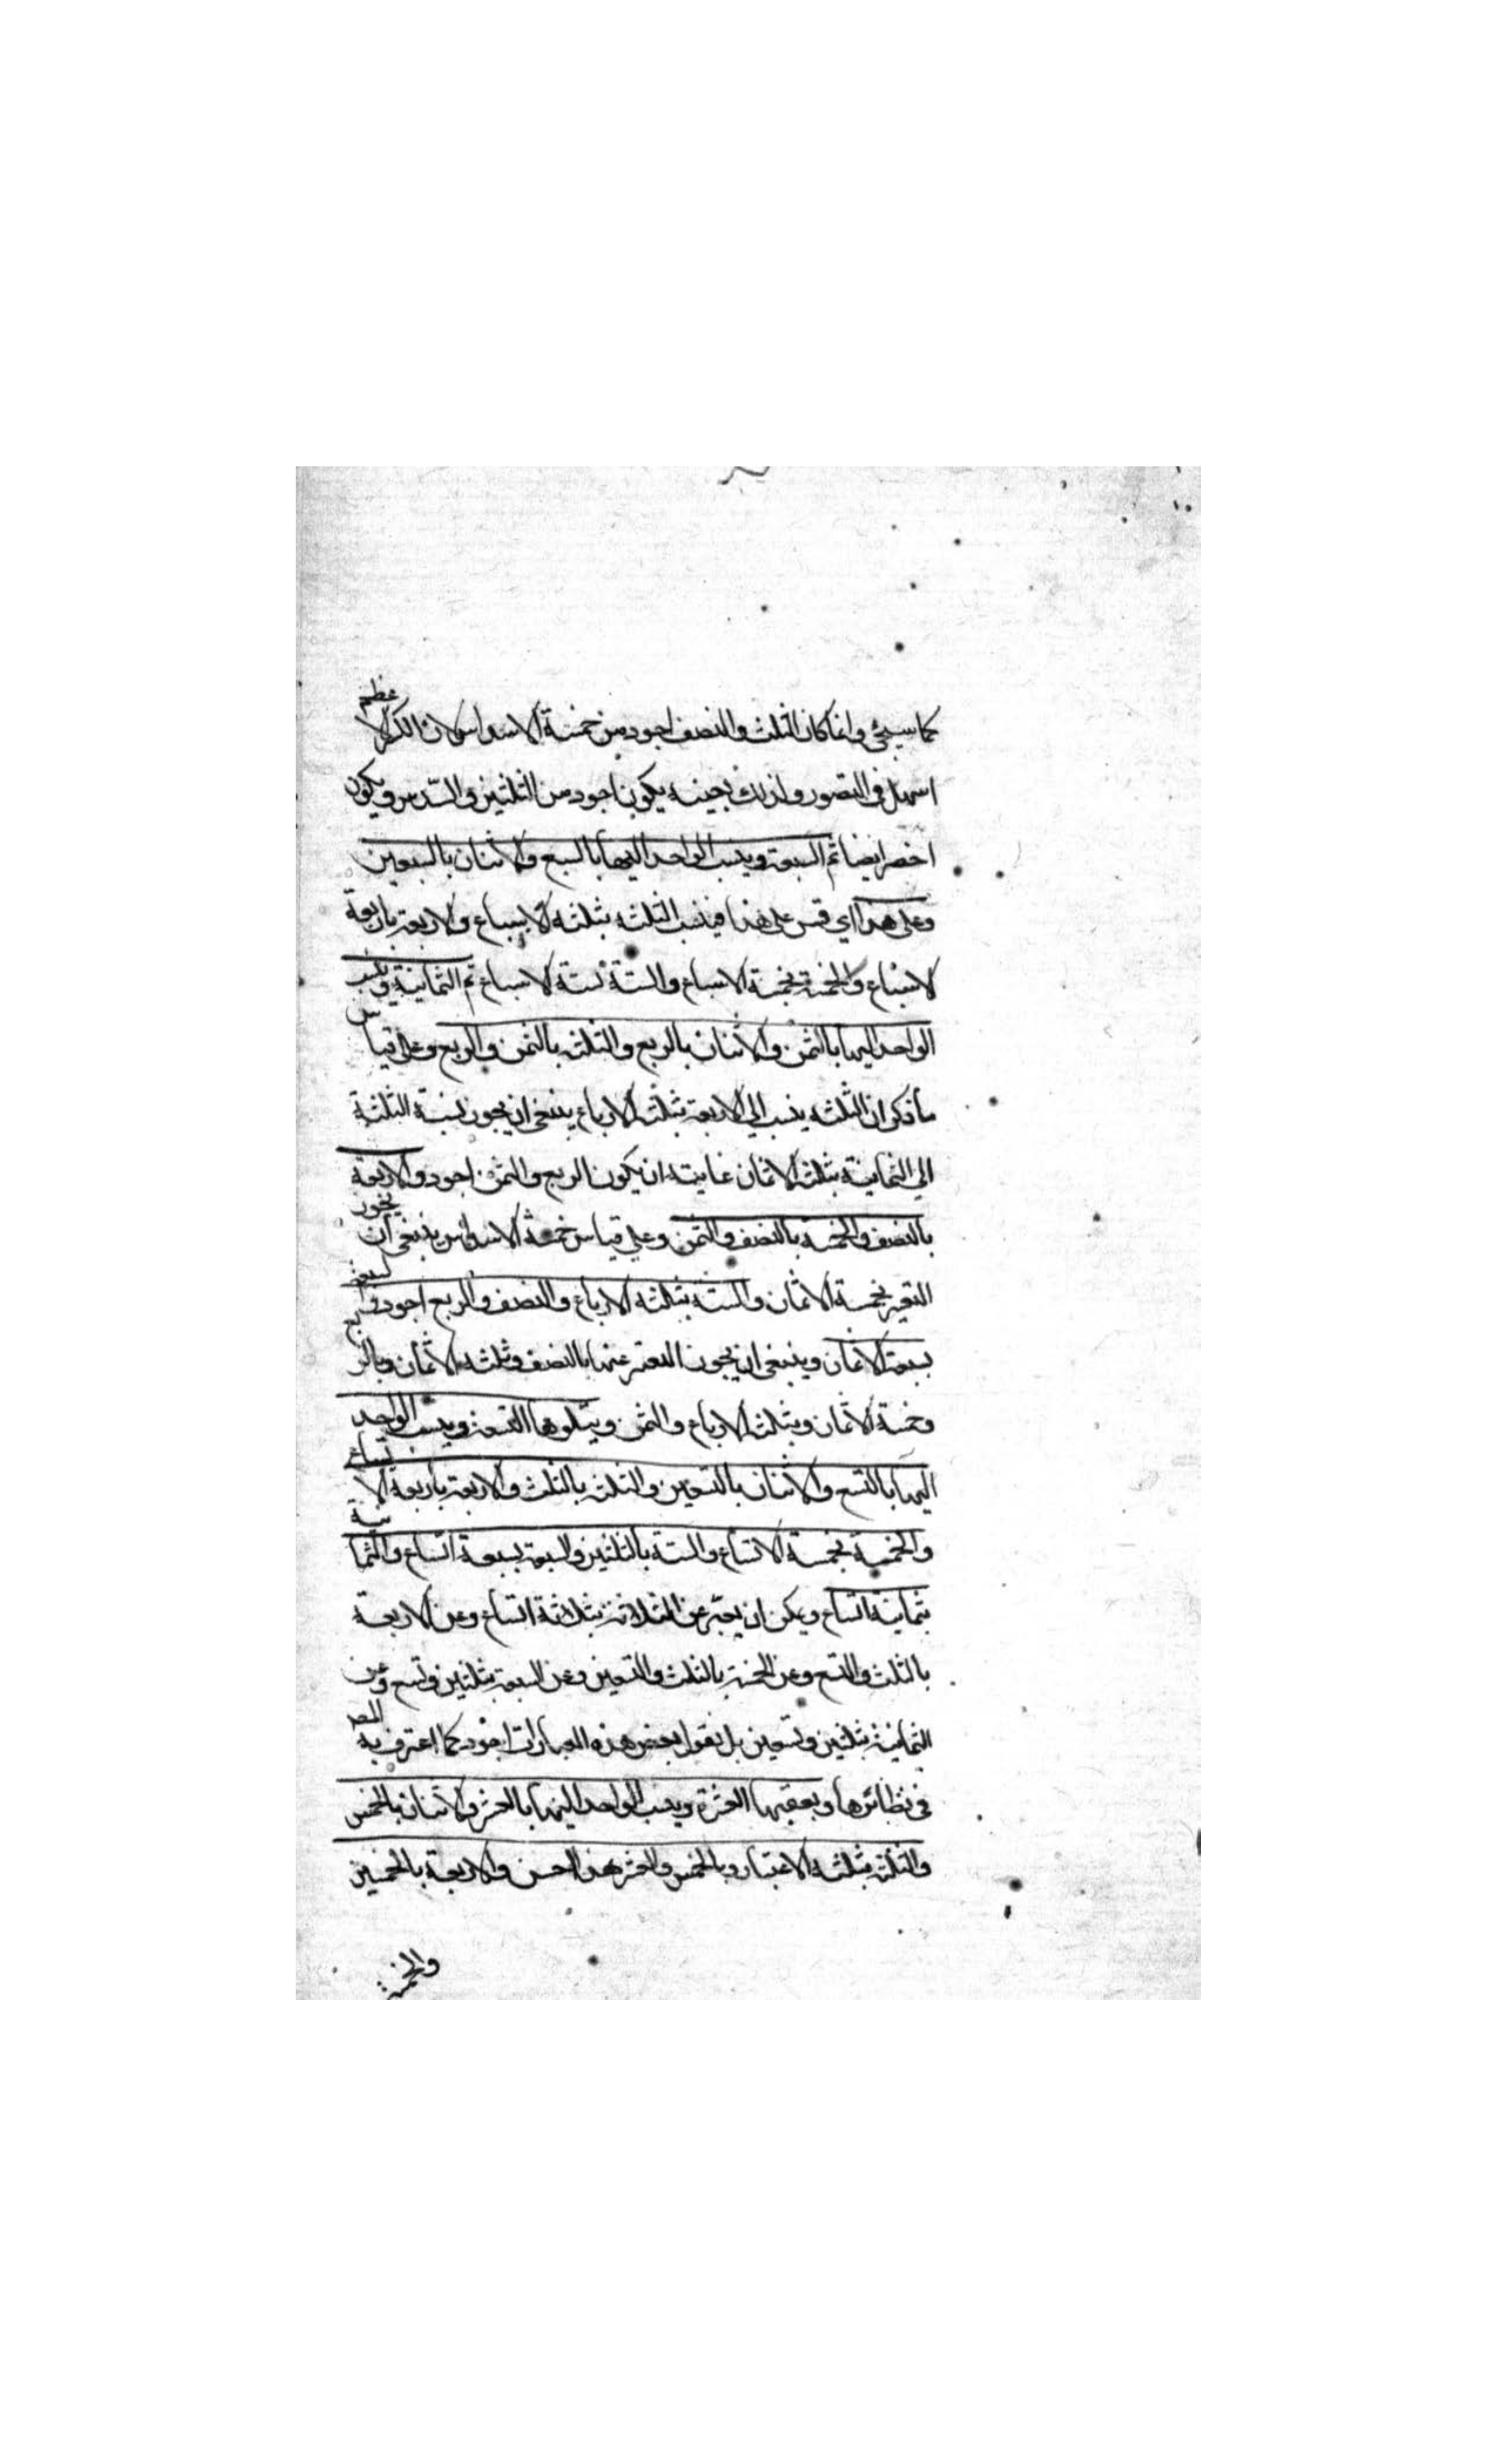 كما سيجئ وانما كان الثلث والنصف اجود من خمسة الاسداس لان الكسر الاعظم
اسهل فى التصور ولذلك بعينه يكون اجود من الثلثين والسدس ويكون
اخصر ايضا ثم السبعة وينسب الواحد اليها بالسبع والاثنان بالسبعين
وعلى هذا اي قس على هذا فينسب الثلثه بثلثه الاسباع والاربعة باربعة
الاسباع والخمسة بخمسة الاسباع والستة بستة الاسباع ثم الثمانية وينسب
الواحد اليها بالثمن والاثنان بالربع والثلثه بالثمن والربع وعلى قياس
ما ذكر ان الثلثه ينسب الي الاربعة بثلثه الارباع ينبغى ان يجوز نسبة الثلثة
الي الثمانية بثلثه الاثمان غايته ان يكون الربع والثمن اجود والاربعة
بالنصف والخمسة بالنصف والثمن وعلي قياس خمسة الاسداس ينبغى ان يجوز
التعبير بخمسة الاثمان والستة بثلثه الارباع والنصف والربع اجود والسبعة
بسبعة الاثمان وينبغى ان يجوز التعبير عنها بالنصف وثلثه الاثمان وبالربع
وخمسة الاثمان وبثلثه الارباع والثمن ويتلوها التسعة وينسب الواحد
اليها بالتسع والاثنان بالتسعين والثلثه بالثلث والاربعة باربعة الاتساع
والخمسة بخمسة الاتساع والستة بالثلثين والسبعة بسبعة اتساع والثمانية
بثمانية اتساع ويمكن ان يعبر عن الثلاثة بثلاثة اتساع وعن الاربعة
بالثلث والتسع وعن الخمسة بالثلث والتسعين وعن السبعة بثلثين وتسع وعن
الثمانية بثلثين وتسعين بل نقول بعض هذه العبارات اجود كما اعترف به المصـ
فى نظائرها ويعقبها العشرة وينسب الواحد اليها بالعشر والاثنان بالخمس
والثلثه بثلثه الاعشار وبالخمس والعشر هذا احسن والاربعة بالخمسين
والخمسة